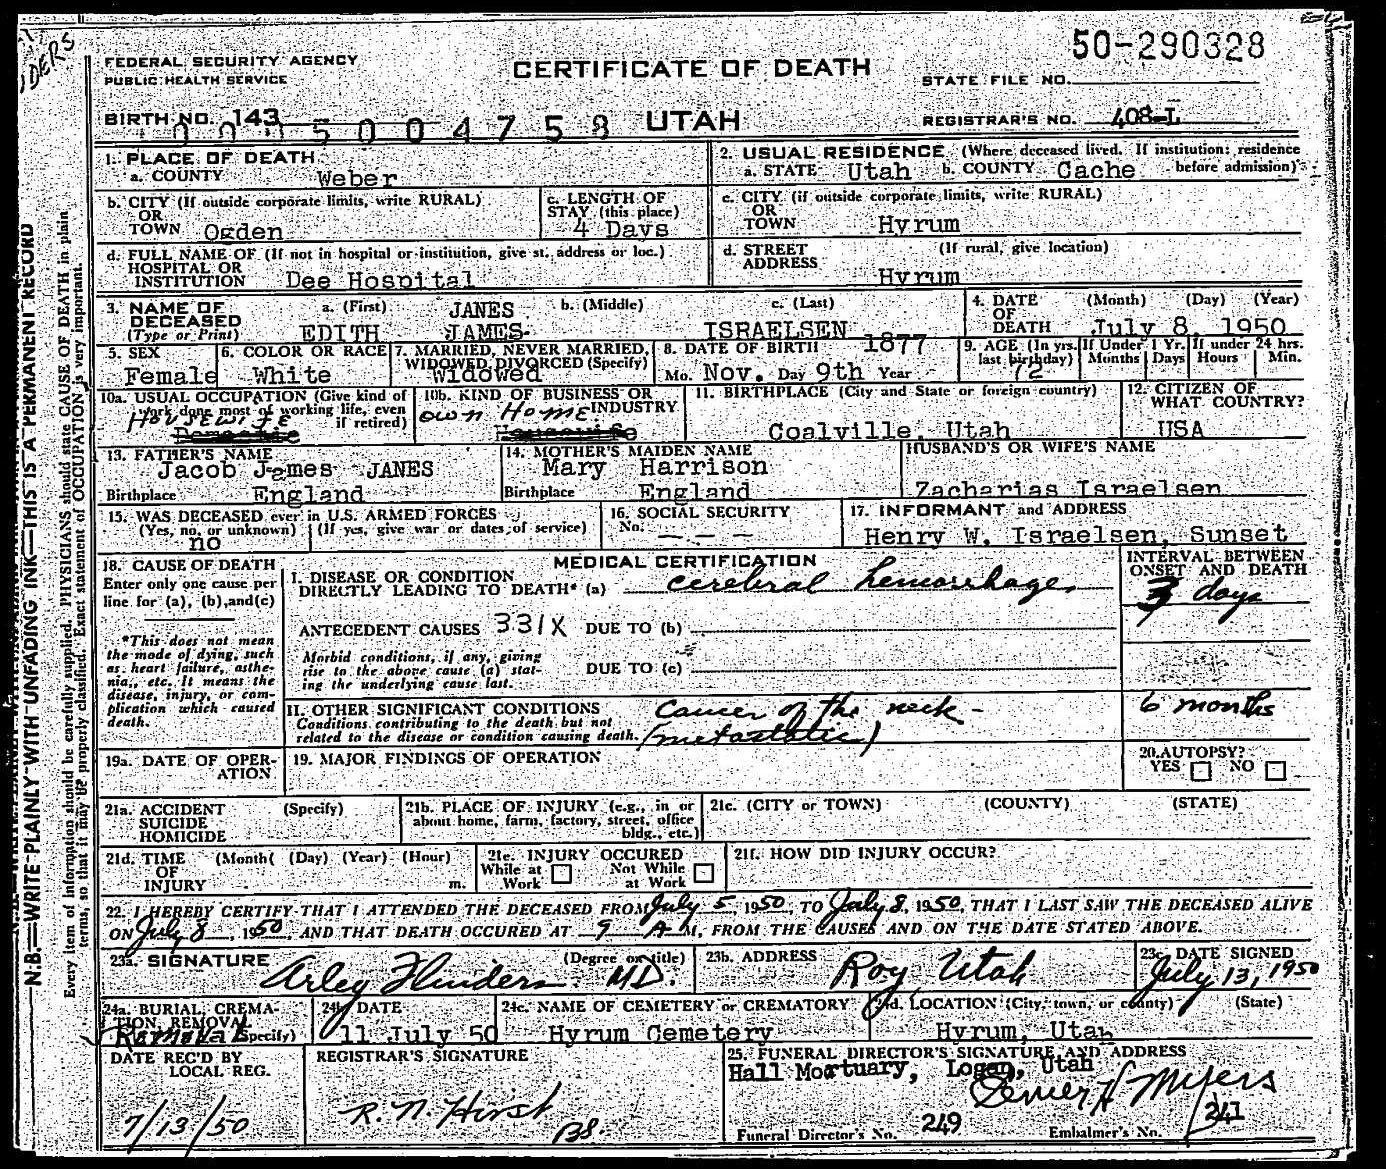 FEDERAL SECURITY AGENCY
PUBLIC HEALTH SERVICE
CERTIFICATE OF DEATH
50-290328
STATE FILE NO.
BIRTH NO. 143
UTAH
REGISTRAR'S NO. 408-L
1. PLACE OF DEATH
a. COUNTY Weber
2. USUAL RESIDENCE (Where deceased lived. If institution: residence before admission)
a. STATE Utah b. COUNTY Cache
b. CITY (If outside corporate limits, write RURAL)
OR
TOWN Ogden
c. LENGTH OF
STAY (this place)
4 Days
c. CITY (if outside corporate limits, write RURAL)
OR
TOWN Hyrum
d. FULL NAME OF (If not in hospital or institution, give st. address or loc.)
HOSPITAL OR
INSTITUTION Dee Hospital
d. STREET (If rural, give location)
ADDRESS Hyrum
3. NAME OF
DECEASED
(Type or Print)
a. (First) b. (Middle) c. (Last)
JANES
EDITH JAMES ISRAELSEN
4. DATE (Month) (Day) (Year)
OF
DEATH July 8, 1950
5. SEX
Female
6. COLOR OR RACE
White
7. MARRIED, NEVER MARRIED,
WIDOWED DIVORCED (Specify)
Widowed
8. DATE OF BIRTH 1877
Mo. Nov. Day 9th Year
9. AGE (In yrs. last birthday) 72
If Under 1 Yr. Months Days
If under 24 hrs. Hours Min.
10a. USUAL OCCUPATION (Give kind of
work done most of working life, even
if retired)
HOUSEWIFE
10b. KIND OF BUSINESS OR
INDUSTRY
own Home
Housewife
11. BIRTHPLACE (City and State or foreign country)
Coalville, Utah
12. CITIZEN OF
WHAT COUNTRY?
USA
13. FATHER'S NAME
Jacob James JANES
Birthplace England
14. MOTHER'S MAIDEN NAME
Mary Harrison
Birthplace England
HUSBAND'S OR WIFE'S NAME
Zacharias Israelsen
15. WAS DECEASED ever in U.S. ARMED FORCES
(Yes, no, or unknown) (If yes, give war or dates of service)
no
16. SOCIAL SECURITY
No. - - -
17. INFORMANT and ADDRESS
Henry W. Israelsen, Sunset
18. CAUSE OF DEATH
Enter only one cause per
line for (a), (b), and (c)
*This does not mean
the mode of dying, such
as heart failure, asthe-
nia, etc. It means the
disease, injury, or com-
plication which caused
death.
MEDICAL CERTIFICATION
I. DISEASE OR CONDITION
DIRECTLY LEADING TO DEATH* (a) cerebral hemorrhage.
INTERVAL BETWEEN
ONSET AND DEATH
3 days
ANTECEDENT CAUSES 331X DUE TO (b)
Morbid conditions, if any, giving
rise to the above cause (a) stat-
ing the underlying cause last.
DUE TO (c)
II. OTHER SIGNIFICANT CONDITIONS
Conditions contributing to the death but not
related to the disease or condition causing death.
Cancer of the neck -
(metastatic)
6 months
19a. DATE OF OPER-
ATION
19. MAJOR FINDINGS OF OPERATION
20. AUTOPSY?
YES NO
21a. ACCIDENT (Specify)
SUICIDE
HOMICIDE
21b. PLACE OF INJURY (e.g., in or
about home, farm, factory, street, office
bldg., etc.)
21c. (CITY or TOWN) (COUNTY) (STATE)
21d. TIME (Month( (Day) (Year) (Hour)
OF
INJURY m.
21e. INJURY OCCURED
While at Work Not While at Work
21f. HOW DID INJURY OCCUR?
22. I HEREBY CERTIFY THAT I ATTENDED THE DECEASED FROM July 5, 1950, TO July 8, 1950, THAT I LAST SAW THE DECEASED ALIVE
ON July 8, 1950, AND THAT DEATH OCCURED AT 9 A M, FROM THE CAUSES AND ON THE DATE STATED ABOVE.
23a. SIGNATURE (Degree or title)
Arley Flinders MD.
23b. ADDRESS
Roy Utah
23c. DATE SIGNED
July 13, 1950
24a. BURIAL, CREMA-
TION, REMOVAL
(Specify)
Removal
24b. DATE
11 July 50
24c. NAME OF CEMETERY or CREMATORY
Hyrum Cemetery
24d. LOCATION (City, town, or county) (State)
Hyrum, Utah
DATE REC'D BY
LOCAL REG.
7/13/50
REGISTRAR'S SIGNATURE
R. N. Hirst
BS.
25. FUNERAL DIRECTOR'S SIGNATURE AND ADDRESS
Hall Mortuary, Logan, Utah
Myers
Funeral Director's No. 249 Embalmer's No. 241
N.B.—WRITE PLAINLY WITH UNFADING INK—THIS IS A PERMANENT RECORD
Every item of information should be carefully supplied. PHYSICIANS should state CAUSE OF DEATH in plain
terms, so that it may be properly classified. Exact statement of OCCUPATION is very important.